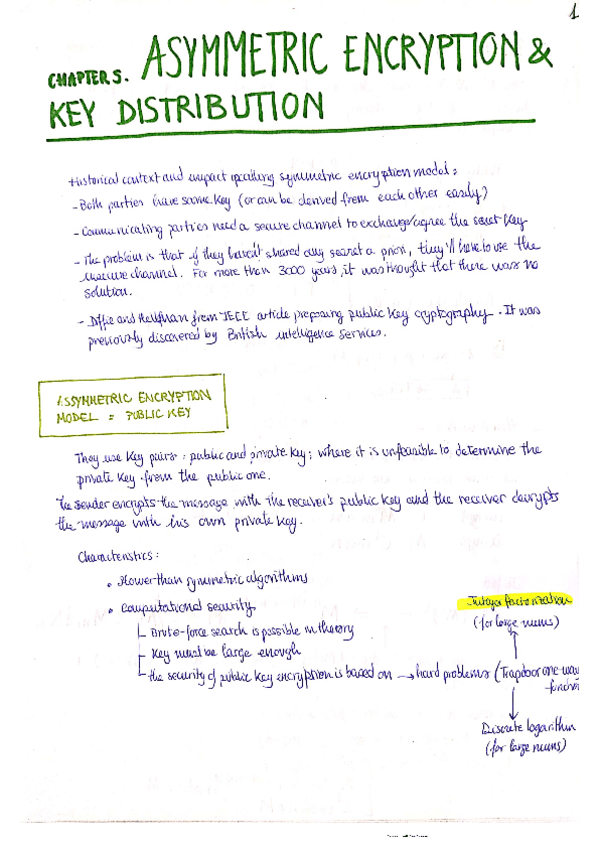 1
CHAPTER 5. ASYMMETRIC ENCRYPTION &
KEY DISTRIBUTION
Historical context and impact recalling symmetric encryption model:
- Both parties have same key (or can be derived from each other easily)
- Communicating parties need a secure channel to exchange/agree the secret key
- The problem is that if they haven't shared any secret a priori, they'll have to use the
insecure channel. For more than 3000 years, it was thought that there was no
solution.
- Diffie and Hellman from IEEE article proposing public key cryptography. It was
previously discovered by British intelligence services.
ASSYMETRIC ENCRYPTION
MODEL = PUBLIC KEY
They use key pairs: public and private key; where it is unfeasible to determine the
private key from the public one.
The sender encrypts the message with the receiver's public key and the receiver decrypts
the message with his own private key.
Characteristics:
• Slower than symmetric algorithms
• Computational security
Brute-force search is possible in theory
Key must be large enough
the security of public key encryption is based on → hard problems (Trapdoor one-way
function
Integer factorization
(for large nums)
Discrete logarithm
(for large nums)